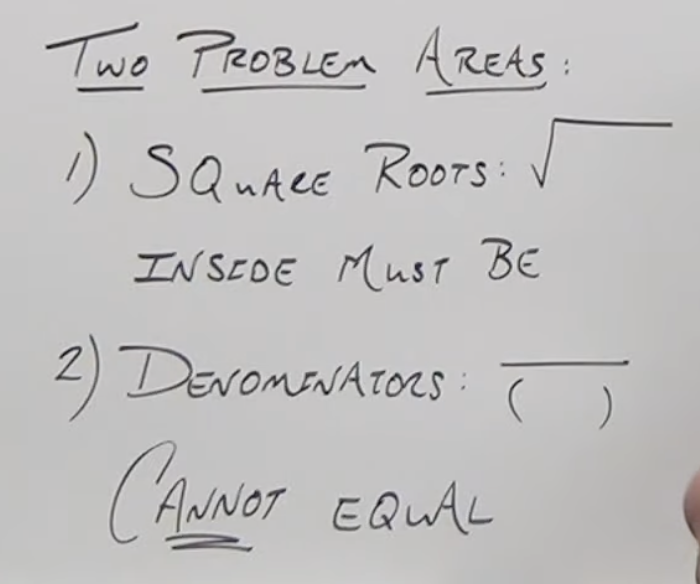 TWO PROBLEM AREAS:
1) SQUARE ROOTS: √
INSIDE MUST BE
2) DENOMINATORS: ( )
CANNOT EQUAL